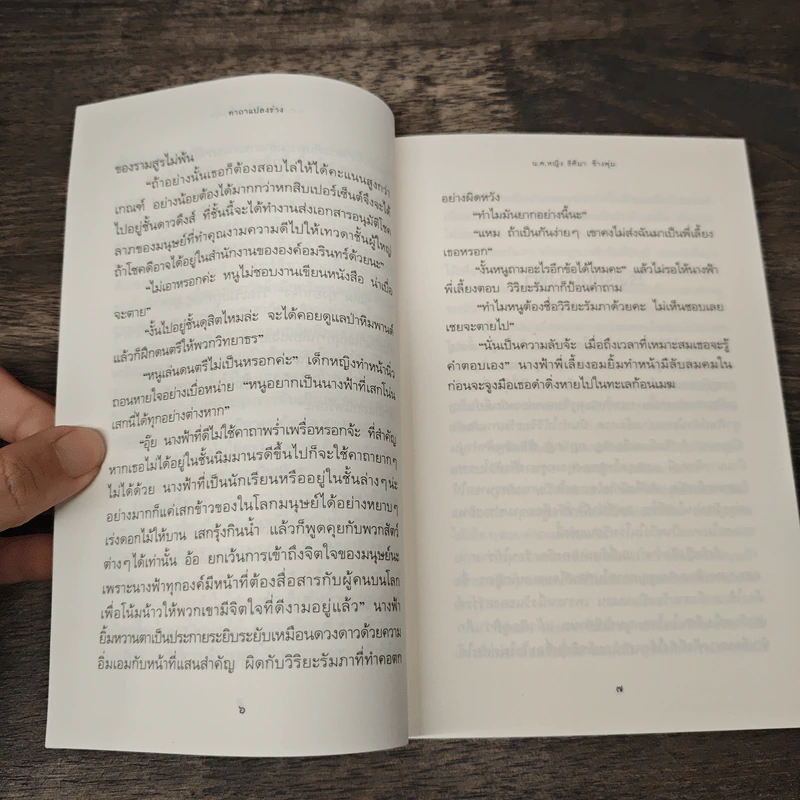 คาถาแปลงร่าง
ของรามสูรไม่พ้น
“ถ้าอย่างนั้นเธอก็ต้องสอบไล่ให้ได้คะแนนสูงกว่า
เกณฑ์ อย่างน้อยต้องได้มากกว่าหกสิบเปอร์เซ็นต์จึงจะได้
ไปอยู่ชั้นดาวดึงส์ ที่ชั้นนี้จะได้ทำงานส่งเอกสารอนุมัติโชค
ลาภของมนุษย์ที่ทำคุณงามความดีไปให้เทวดาชั้นผู้ใหญ่
ถ้าโชคดีอาจได้อยู่ในสำนักงานขององค์อมรินทร์ด้วยนะ”
“ไม่เอาหรอกค่ะ หนูไม่ชอบงานเขียนหนังสือ น่าเบื่อ
จะตาย”
“งั้นไปอยู่ชั้นดุสิตไหมล่ะ จะได้คอยดูแลป่าหิมพานต์
แล้วก็ฝึกดนตรีให้พวกวิทยาธร”
“หนูเล่นดนตรีไม่เป็นหรอกค่ะ” เด็กหญิงทำหน้านิ่ว
ถอนหายใจอย่างเบื่อหน่าย “หนูอยากเป็นนางฟ้าที่เสกโน่น
เสกนี่ได้ทุกอย่างต่างหาก”
“อุ๊ย นางฟ้าที่ดีไม่ใช้คาถาพร่ำเพรื่อหรอกจ้ะ ที่สำคัญ
หากเธอไม่ได้อยู่ในชั้นนิมมานรดีขึ้นไปก็จะใช้คาถายากๆ
ไม่ได้ด้วย นางฟ้าที่เป็นนักเรียนหรืออยู่ในชั้นล่างๆน่ะ
อย่างมากก็แค่เสกข้าวของในโลกมนุษย์ได้อย่างหยาบๆ
เร่งดอกไม้ให้บาน เสกรุ้งกินน้ำ แล้วก็พูดคุยกับพวกสัตว์
ต่างๆได้เท่านั้น อ้อ ยกเว้นการเข้าถึงจิตใจของมนุษย์นะ
เพราะนางฟ้าทุกองค์มีหน้าที่ต้องสื่อสารกับผู้คนบนโลก
เพื่อโน้มน้าวให้พวกเขามีจิตใจที่ดีงามอยู่แล้ว” นางฟ้า
ยิ้มหวานตาเป็นประกายระยิบระยับเหมือนดวงดาวด้วยความ
อิ่มเอมกับหน้าที่แสนสำคัญ ผิดกับวิริยะรัมภาที่ทำคอตก
๖
น.ต.หญิง ธิติมา ช้างพุ่ม
อย่างผิดหวัง
“ทำไมมันยากอย่างนี้นะ”
“แหม ถ้าเป็นกันง่ายๆ เขาคงไม่ส่งฉันมาเป็นพี่เลี้ยง
เธอหรอก”
“งั้นหนูถามอะไรอีกข้อได้ไหมคะ” แล้วไม่รอให้นางฟ้า
พี่เลี้ยงตอบ วิริยะรัมภาก็ป้อนคำถาม
“ทำไมหนูต้องชื่อวิริยะรัมภาด้วยคะ ไม่เห็นชอบเลย
เชยจะตายไป”
“นั่นเป็นความลับจ้ะ เมื่อถึงเวลาที่เหมาะสมเธอจะรู้
คำตอบเอง” นางฟ้าพี่เลี้ยงอมยิ้มทำหน้ามีลับลมคมใน
ก่อนจะจูงมือเธอดำดิ่งหายไปในทะเลก้อนเมฆ
๗